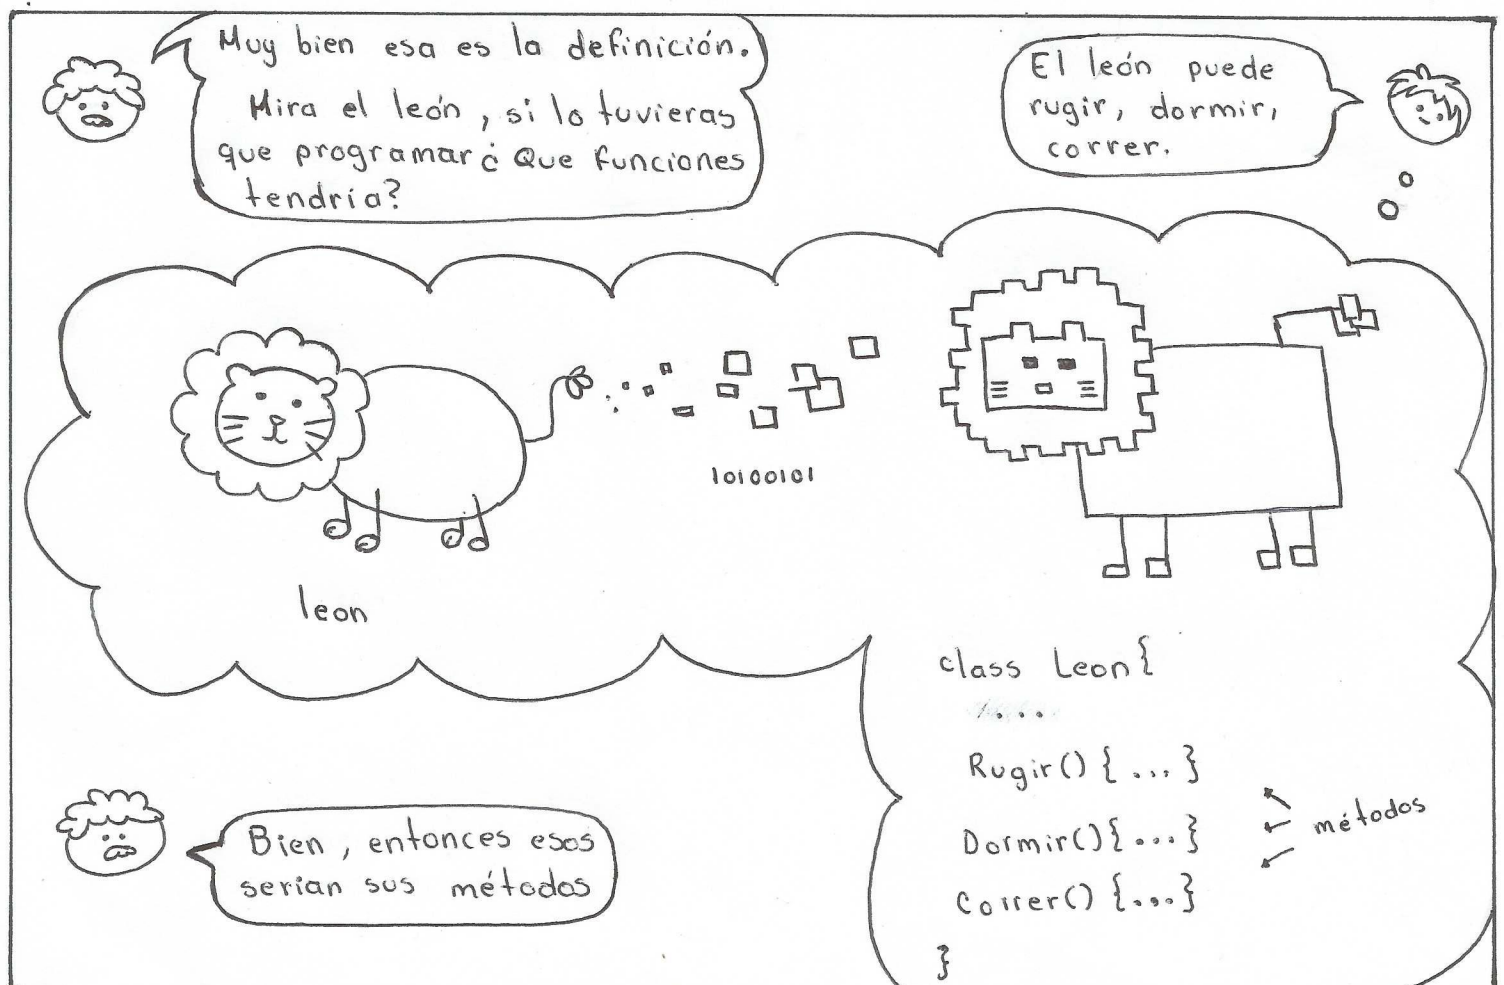 Muy bien esa es la definición.
Mira el león, si lo tuvieras
que programar ¿ Que funciones
tendría?
El león puede
rugir, dormir,
correr.
10100101
leon
class Leon {
...
Rugir() { ... }
Dormir() { ... }
Correr() { ... }
}
métodos
Bien, entonces esos
serian sus métodos